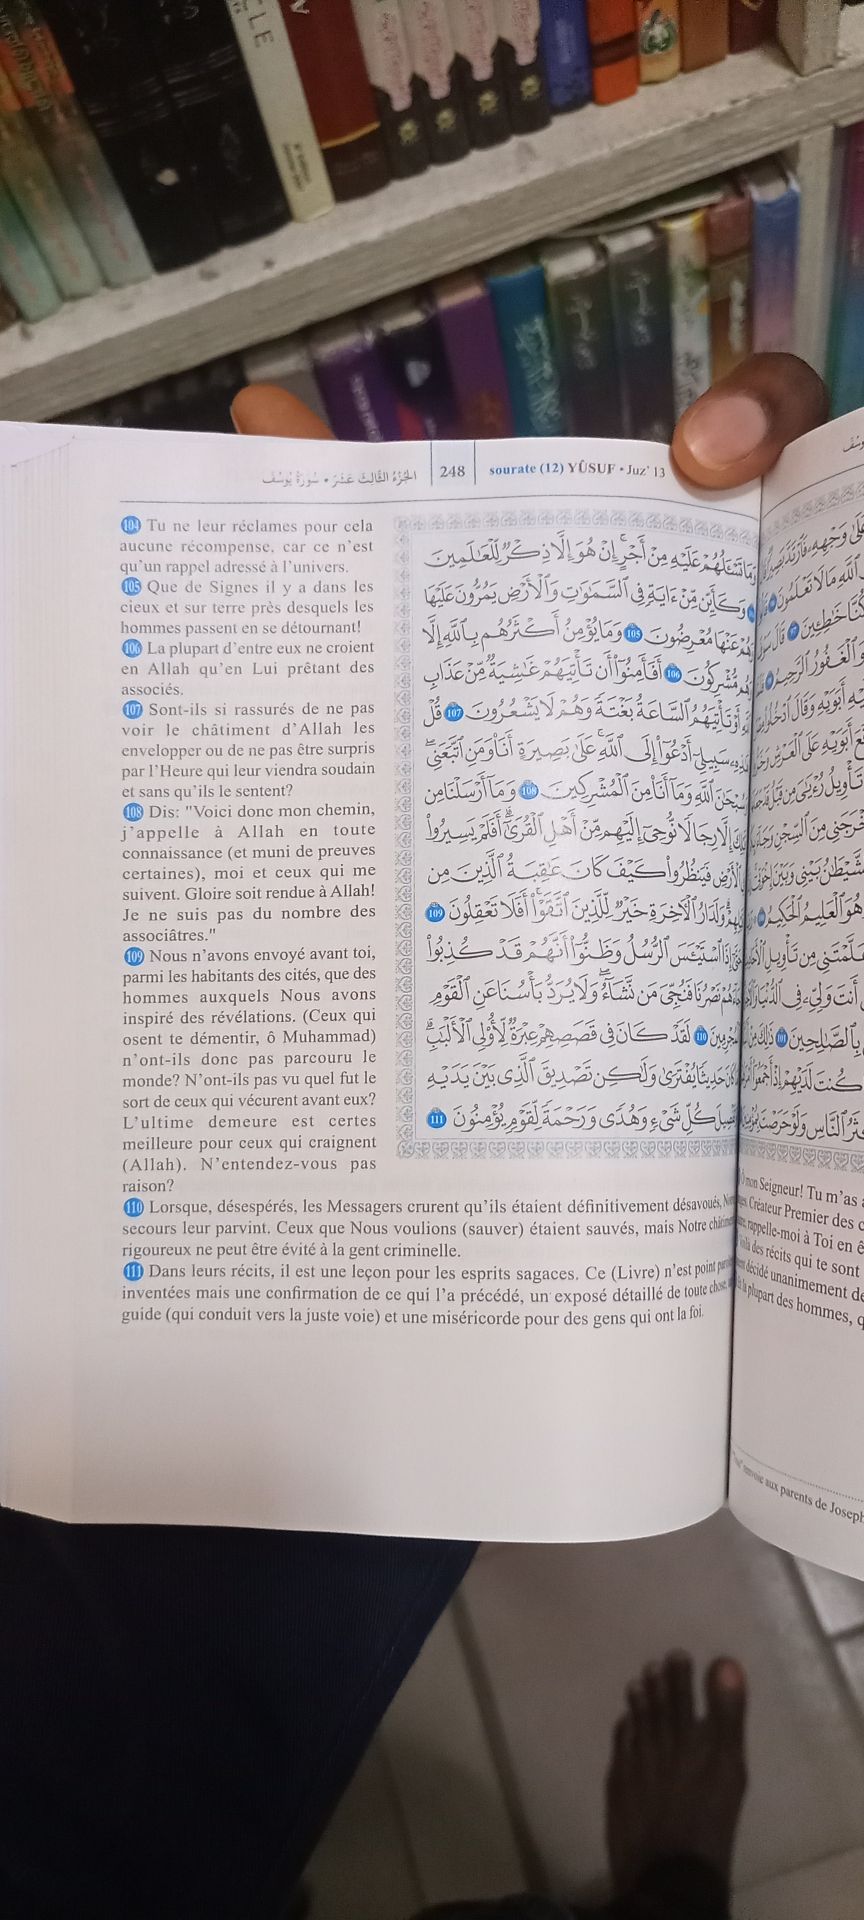 CLE
الجُزْءُ الثَّالِثَ عَشَرَ • سُورَةُ يُوسُفَ
248
sourate (12) YÛSUF • Juz' 13
104 Tu ne leur réclames pour cela
aucune récompense, car ce n'est
qu'un rappel adressé à l'univers.
105 Que de Signes il y a dans les
cieux et sur terre près desquels les
hommes passent en se détournant!
106 La plupart d'entre eux ne croient
en Allah qu'en Lui prêtant des
associés.
107 Sont-ils si rassurés de ne pas
voir le châtiment d'Allah les
envelopper ou de ne pas être surpris
par l'Heure qui leur viendra soudain
et sans qu'ils le sentent?
108 Dis: "Voici donc mon chemin,
j'appelle à Allah en toute
connaissance (et muni de preuves
certaines), moi et ceux qui me
suivent. Gloire soit rendue à Allah!
Je ne suis pas du nombre des
associâtres."
109 Nous n'avons envoyé avant toi,
parmi les habitants des cités, que des
hommes auxquels Nous avons
inspiré des révélations. (Ceux qui
osent te démentir, ô Muhammad)
n'ont-ils donc pas parcouru le
monde? N'ont-ils pas vu quel fut le
sort de ceux qui vécurent avant eux?
L'ultime demeure est certes
meilleure pour ceux qui craignent
(Allah). N'entendez-vous pas
raison?
وَمَا تَسْـَٔلُهُمْ عَلَيْهِ مِنْ أَجْرٍ ۚ إِنْ هُوَ إِلَّا ذِكْرٌ لِّلْعَـٰلَمِينَ
وَكَأَيِّن مِّنْ ءَايَةٍ فِى ٱلسَّمَـٰوَٰتِ وَٱلْأَرْضِ يَمُرُّونَ عَلَيْهَا
وَهُمْ عَنْهَا مُعْرِضُونَ 105 وَمَا يُؤْمِنُ أَكْثَرُهُم بِٱللَّهِ إِلَّا
وَهُم مُّشْرِكُونَ 106 أَفَأَمِنُوٓا۟ أَن تَأْتِيَهُمْ غَـٰشِيَةٌ مِّنْ عَذَابِ
أَوْ تَأْتِيَهُمُ ٱلسَّاعَةُ بَغْتَةً وَهُمْ لَا يَشْعُرُونَ 107 قُلْ
سَبِيلِىٓ أَدْعُوٓا۟ إِلَى ٱللَّهِ ۚ عَلَىٰ بَصِيرَةٍ أَنَا۠ وَمَنِ ٱتَّبَعَنِى ۖ
سُبْحَـٰنَ ٱللَّهِ وَمَآ أَنَا۠ مِنَ ٱلْمُشْرِكِينَ 108 وَمَآ أَرْسَلْنَا مِن
إِلَّا رِجَالًا نُّوحِىٓ إِلَيْهِم مِّنْ أَهْلِ ٱلْقُرَىٰٓ ۗ أَفَلَمْ يَسِيرُوا۟
ٱلْأَرْضِ فَيَنظُرُوا۟ كَيْفَ كَانَ عَـٰقِبَةُ ٱلَّذِينَ مِن
وَلَدَارُ ٱلْـَٔاخِرَةِ خَيْرٌ لِّلَّذِينَ ٱتَّقَوْا۟ ۗ أَفَلَا تَعْقِلُونَ 109
إِذَا ٱسْتَيْـَٔسَ ٱلرُّسُلُ وَظَنُّوٓا۟ أَنَّهُمْ قَدْ كُذِبُوا۟
نَصْرُنَا فَنُجِّىَ مَن نَّشَآءُ ۖ وَلَا يُرَدُّ بَأْسُنَا عَنِ ٱلْقَوْمِ
ٱلْمُجْرِمِينَ 110 لَقَدْ كَانَ فِى قَصَصِهِمْ عِبْرَةٌ لِّأُو۟لِى ٱلْأَلْبَـٰبِ ۗ
كَانَ حَدِيثًا يُفْتَرَىٰ وَلَـٰكِن تَصْدِيقَ ٱلَّذِى بَيْنَ يَدَيْهِ
وَتَفْصِيلَ كُلِّ شَىْءٍ وَهُدًى وَرَحْمَةً لِّقَوْمٍ يُؤْمِنُونَ 111
110 Lorsque, désespérés, les Messagers crurent qu'ils étaient définitivement désavoués,
secours leur parvint. Ceux que Nous voulions (sauver) étaient sauvés, mais Notre châtiment
rigoureux ne peut être évité à la gent criminelle.
111 Dans leurs récits, il est une leçon pour les esprits sagaces. Ce (Livre) n'est point
inventées mais une confirmation de ce qui l'a précédé, un exposé détaillé de toute chose,
guide (qui conduit vers la juste voie) et une miséricorde pour des gens qui ont la foi.
ٱللَّهِ مَا لَا تَعْلَمُونَ
كُنَّا خَـٰطِـِٔينَ 97 قَالَ
ٱلْغَفُورُ ٱلرَّحِيمُ
أَبَوَيْهِ وَقَالَ ٱدْخُلُوا۟
أَبَوَيْهِ عَلَى ٱلْعَرْشِ
تَأْوِيلُ رُءْيَـٰىَ مِن قَبْلُ
مِنَ ٱلسِّجْنِ
بَيْنِى وَبَيْنَ إِخْوَتِىٓ
هُوَ ٱلْعَلِيمُ ٱلْحَكِيمُ
مِن تَأْوِيلِ
أَنتَ وَلِىِّۦ فِى ٱلدُّنْيَا
بِٱلصَّـٰلِحِينَ 101 ذَٰلِكَ مِنْ
كُنتَ لَدَيْهِمْ إِذْ أَجْمَعُوٓا۟
ٱلنَّاسِ وَلَوْ حَرَصْتَ
mon Seigneur! Tu m'as
Créateur Premier des
rappelle-moi à Toi en
des récits qui te sont
décidé unanimement
la plupart des hommes,
renvoie aux parents de Joseph